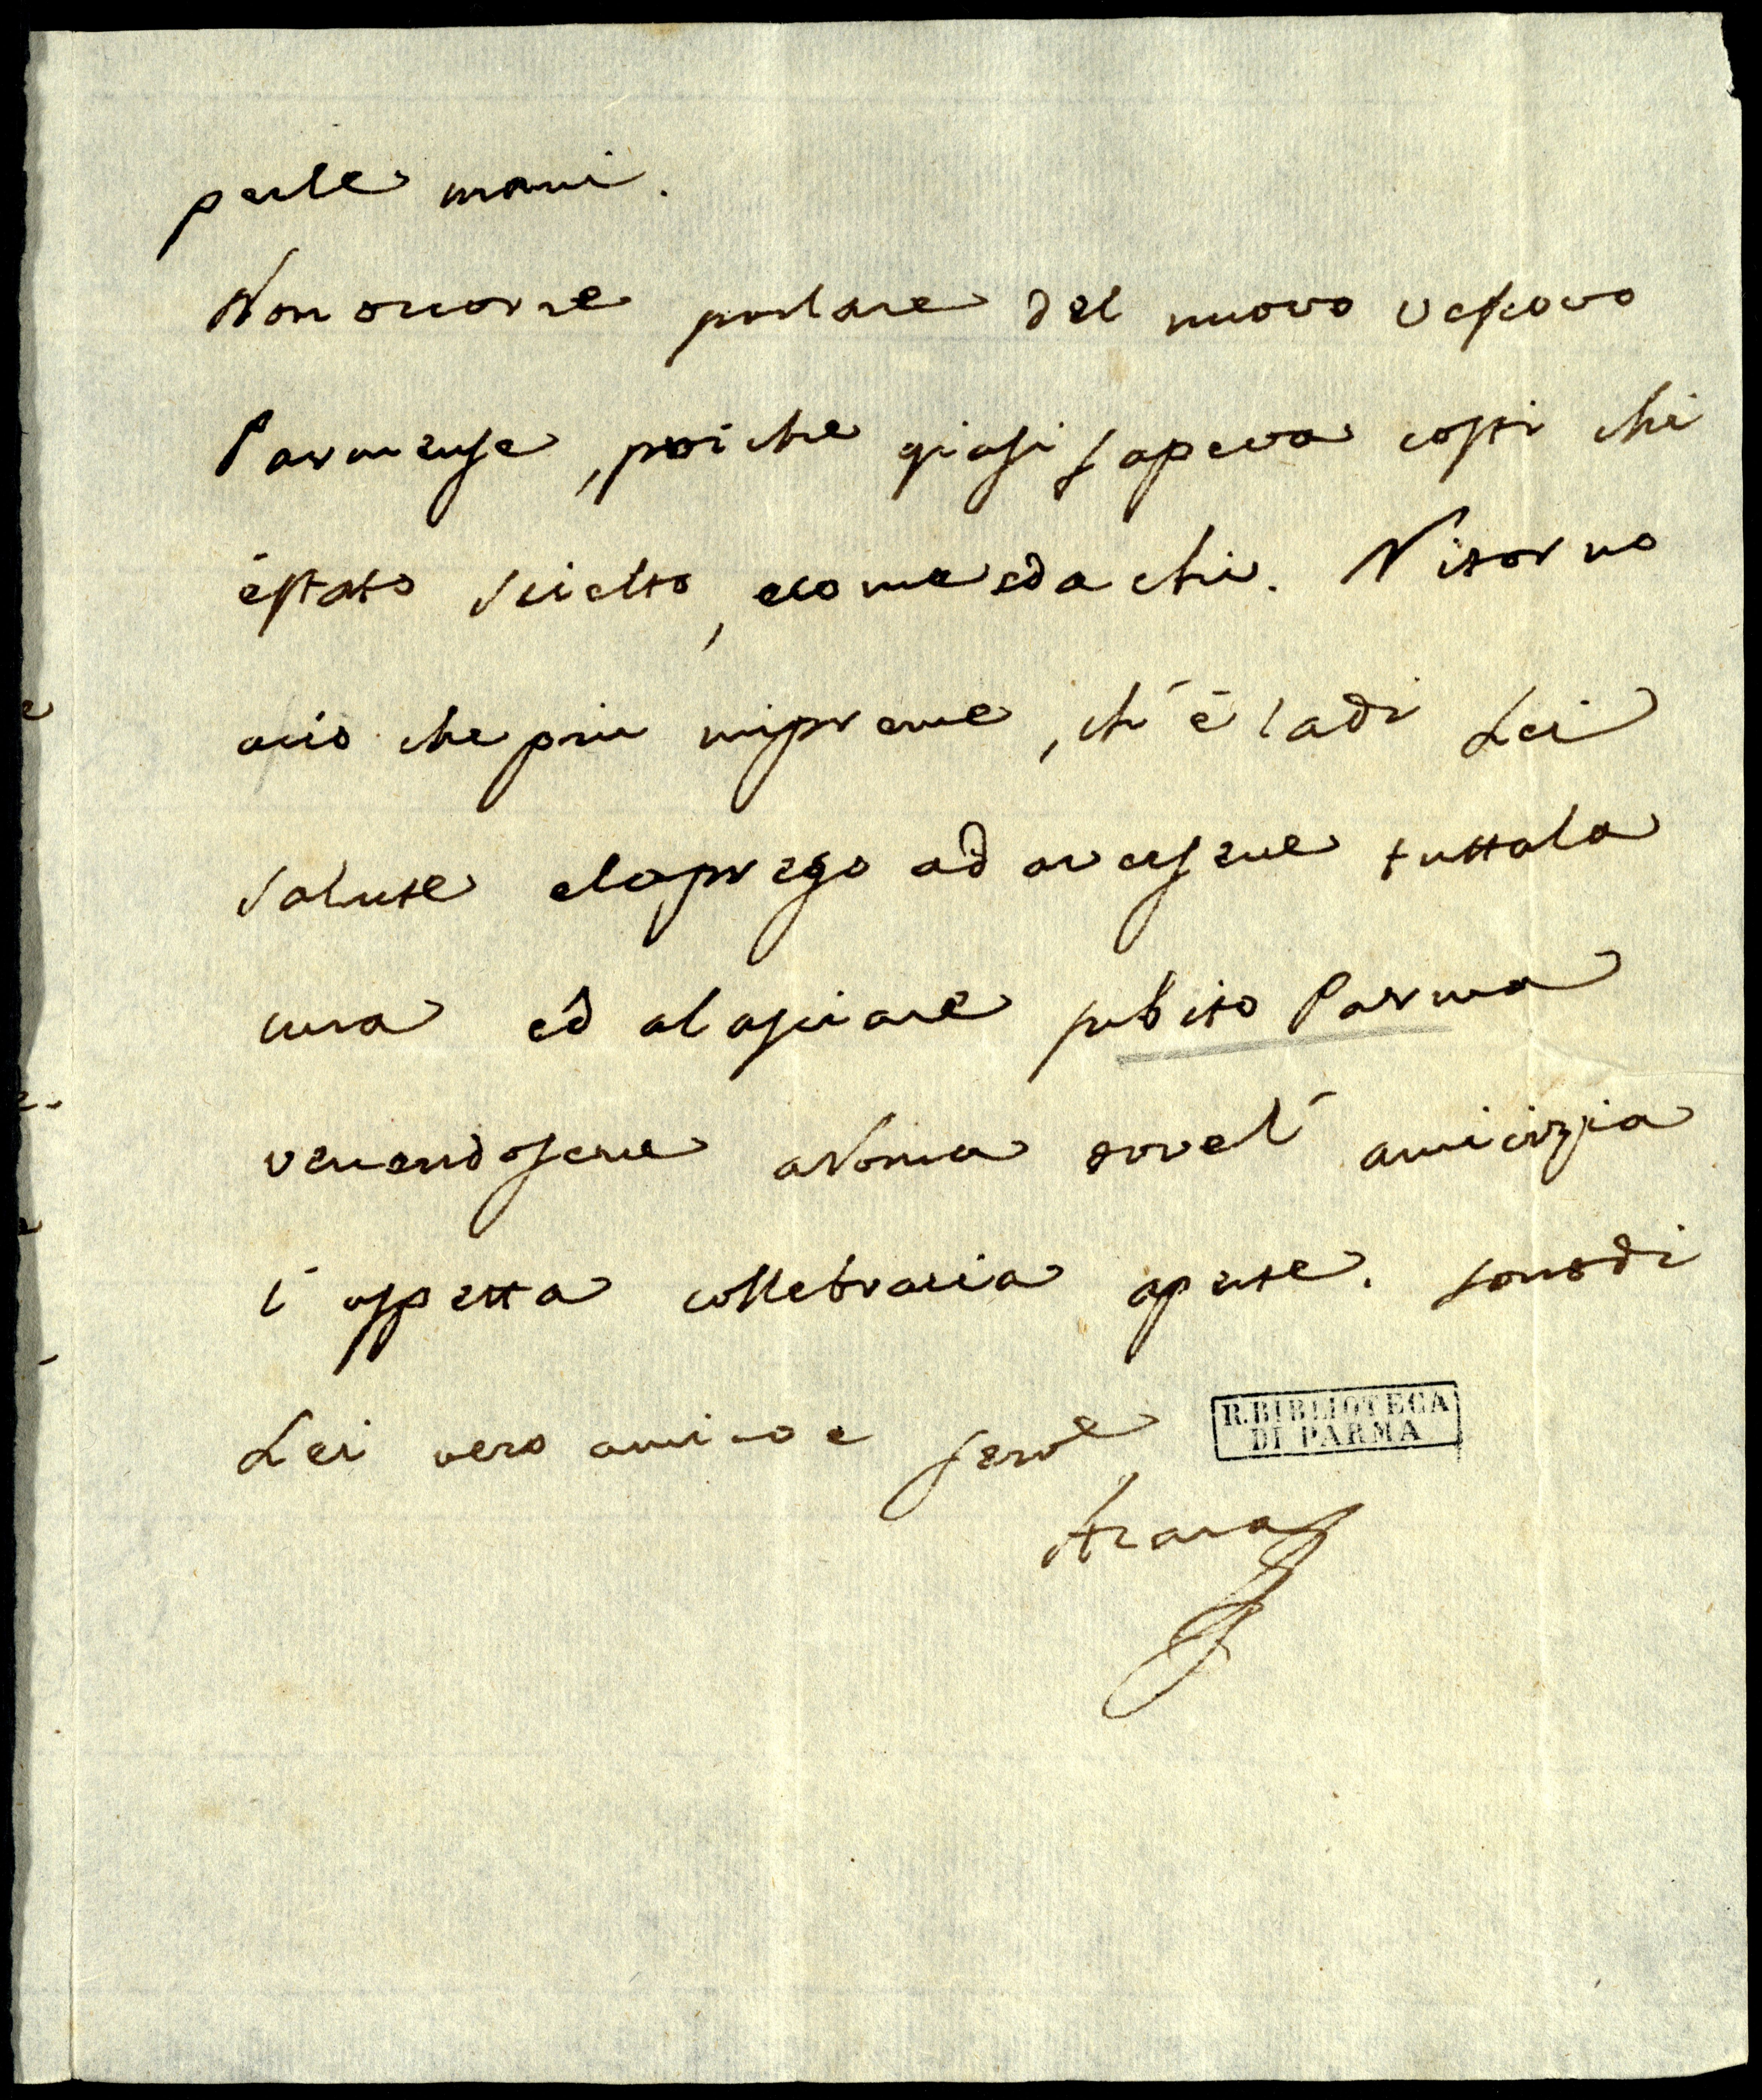 perle mani.
Non occorre parlare del nuovo Vescovo
Parmense, poiche gia si sapeva costi chi
è stato scielto, e come e da chi. Ritorno
a ciò che piu mi preme, ch' è la di Lei
salute e la prego ad aversene tutta la
cura ed a lasciare subito Parma
venendosene a Roma dove l' amicizia
l' aspetta colle braccia aperte. sono di
Lei vero amico e serv.e
Azara
R. BIBLIOTECA
DI PARMA